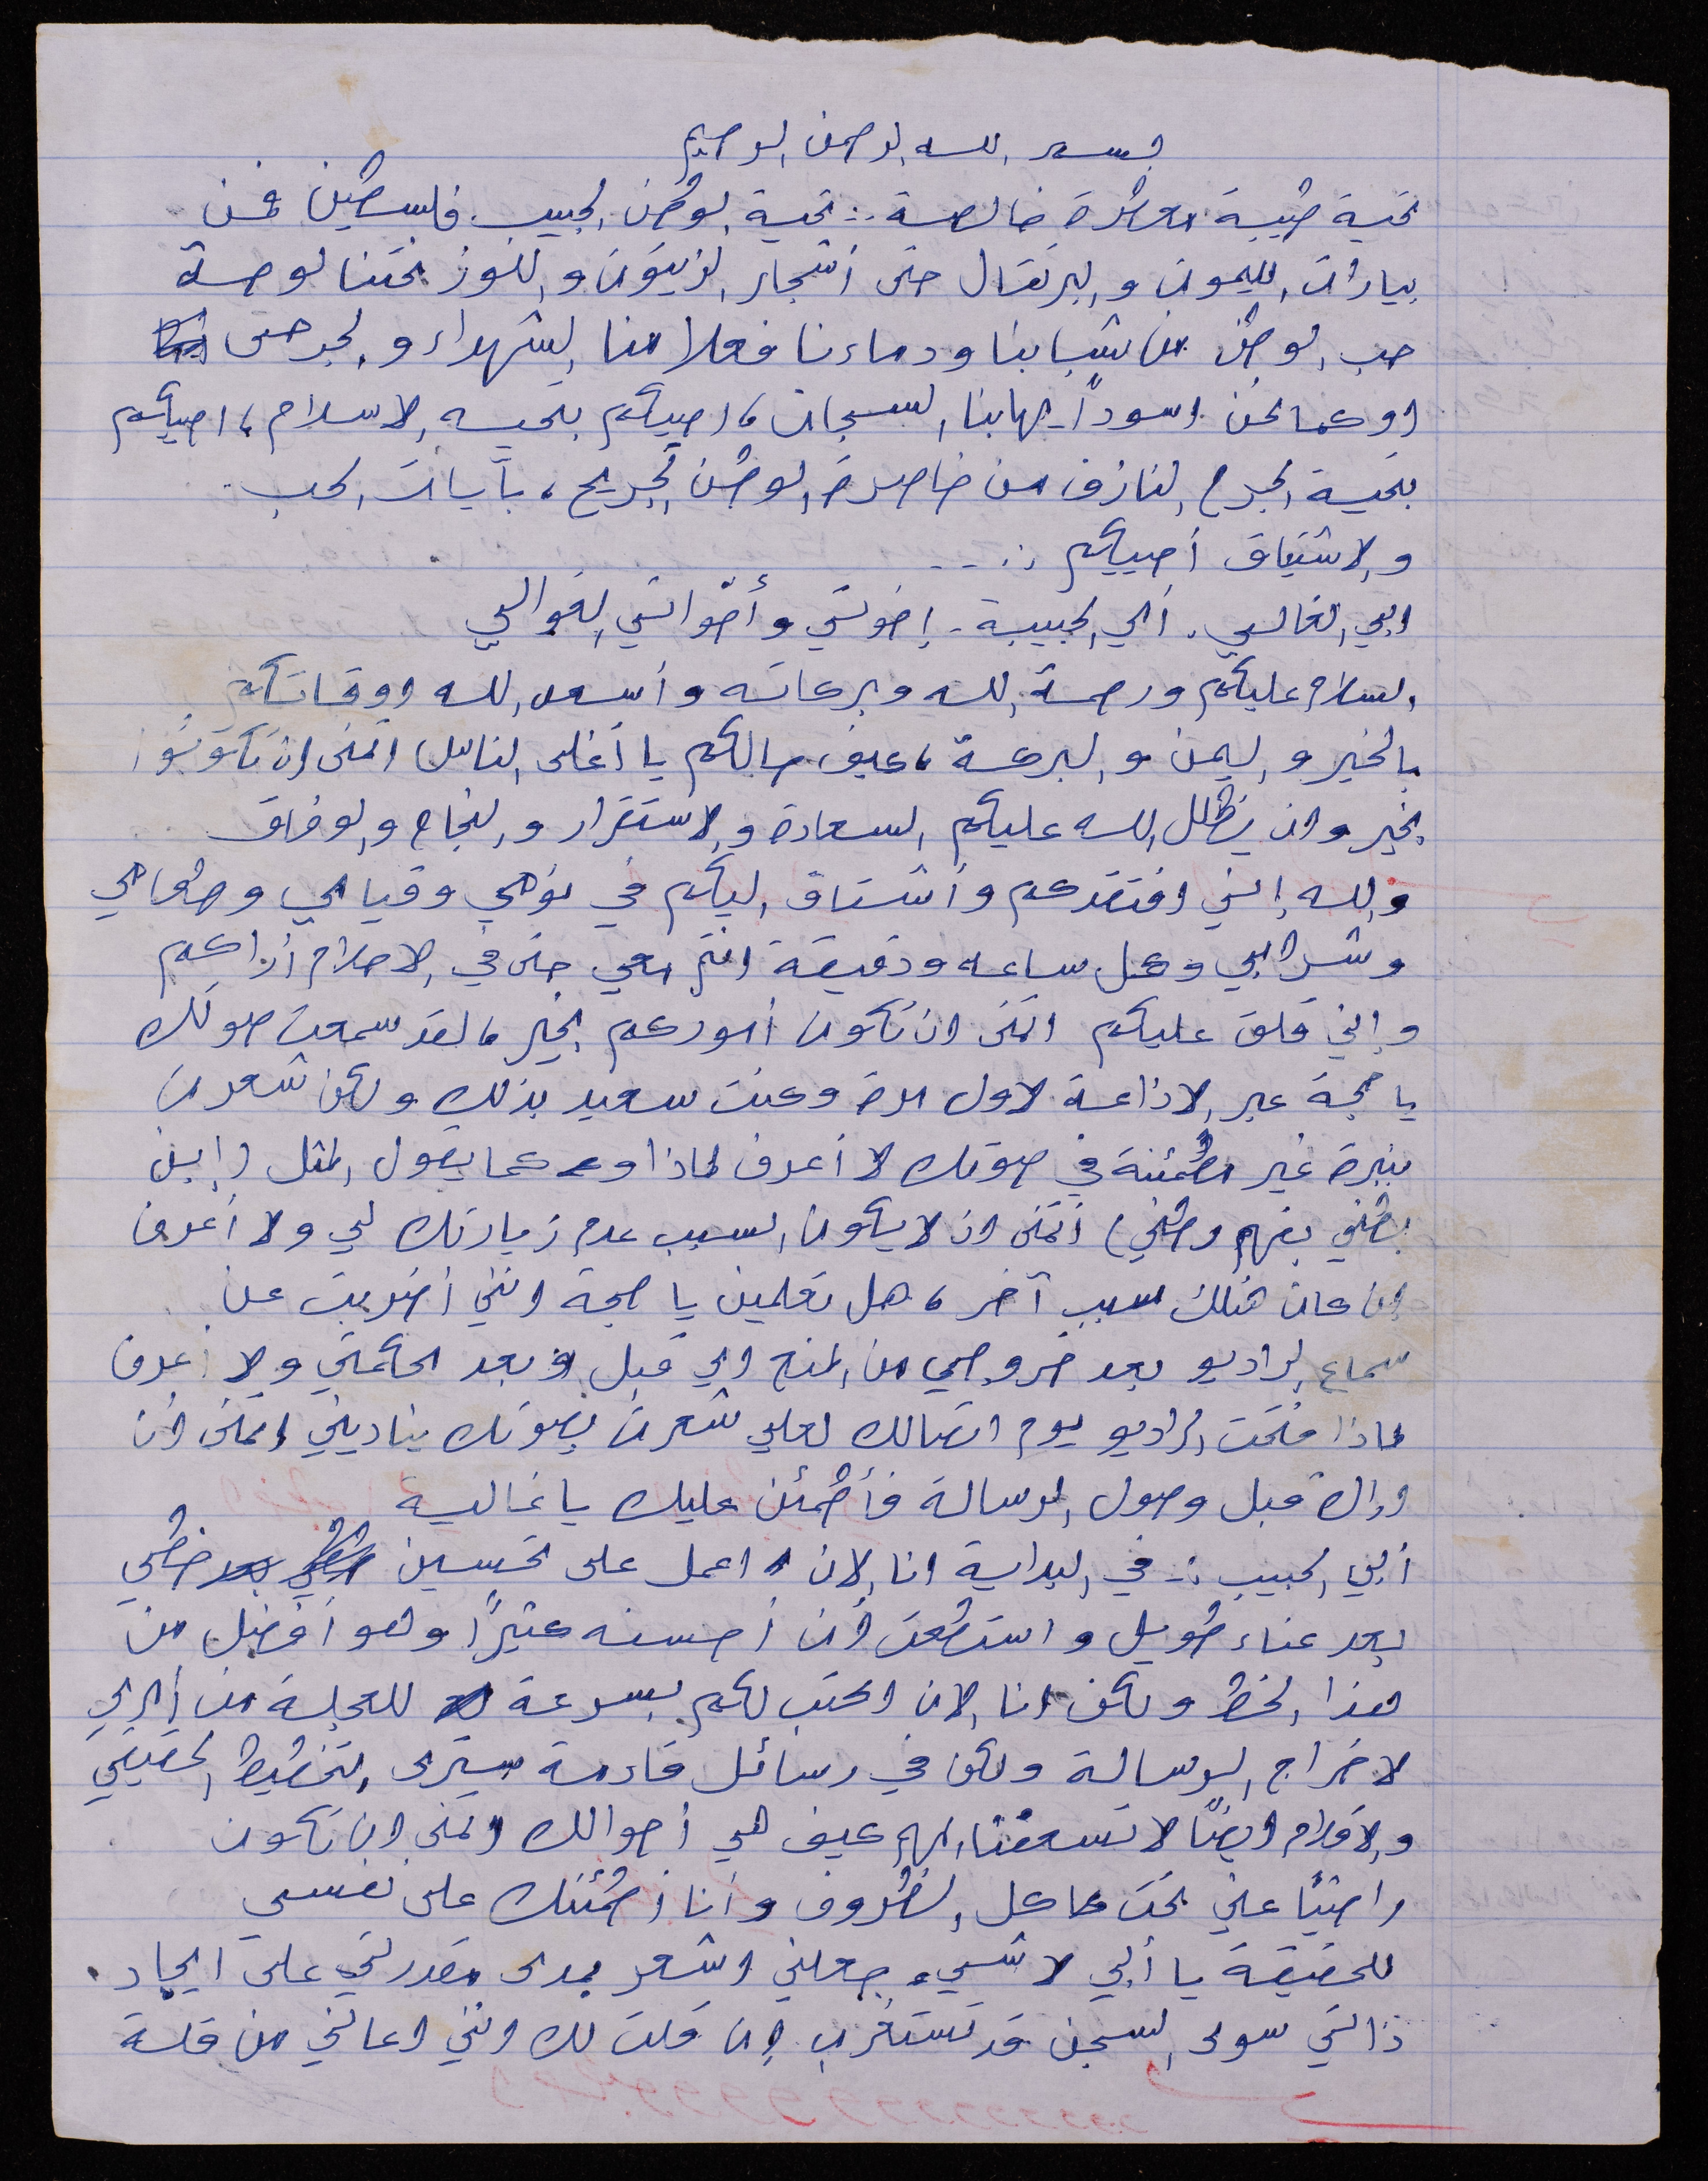 بسم الله الرحمن الرحيم
تحية طيبة معطرة خالصة :. تحية لوطن الحبيب. فلسطين فمن
بيارات الليمون والبرتقال حتى أشجار الزيتون واللوز نحتنا لوحة
حب الوطن من شبابنا ودماءنا فعلا منا الشهداء والجرحى
اوكما نحن اسوداً يهابنا السجان، احييكم بتحيه الاسلام، احييكم
بتحية الجرح النازف من خاصرة الوطن الجريح، بآيات الحب.
والاشتياق أحييكم :. --
ابي الغالي. أمي الحبيبة. إخوتي وأخواتي الغوالي
السلام عليكم ورحمة الله وبركاته وأسعد الله اوقاتكم
بالخير واليمن والبركة، كيف حالكم يا أغلى الناس اتمنى ان تكونوا
بخير وان يظلل الله عليكم السعادة والاستقرار والنجاح والوفاق
والله إنني افتقدكم وأشتاق اليكم في نومي وقيامي وطعامي
وشرابي وكل ساعه ودقيقة انتم معي حتى في الاحلام أراكم
وإني قلق عليكم اتمنى ان تكون أموركم بخير، لقد سمعت صوتك
يا حجة عبر الاذاعة لاول مرة وكنت سعيد بذلك ولكن شعرت
بنبرة غير مطمئنة في صوتك لا أعرف لماذا وكما يقول المثل (إبن
بطني بفهم رطني) أتمنى ان لا يكون السبب عدم زيارتك لي ولا أعرف
إن كان هنلك سبب آخر، هل تعلمين يا حجة انني أضربت عن
سماع الراديو بعد خروجي من المنع اي قبل وبعد محاكمتي ولا أعرف
لماذا فتحت الراديو يوم اتصالك لعلي شعرت بصوتك يناديني اتمنى ان
اراك قبل وصول الرسالة فأطمئن عليك يا غالية
أبي الحبيب :. في البداية انا الان اعمل على تحسين خطي
بعد عناء طويل واستطعت أن أحسنه كثيراً وهو أفضل من
هذا الخط ولكن انا الان اكتب لكم بسرعة للعجلة من أمري
لاخراج الرسالة ولكن في رسائل قادمة سترى التخطيط الحقيقي
والاقلام ايضًا لا تسعفنا المهم كيف هي أحوالك اتمنى ان تكون
راضيًا عني تحت كل الظروف وأنا أطمئنك على نفسي
للحقيقة يا أبي لا شيء جعلني اشعر بمدى مقدرتي على ايجاد
ذاتي سوى السجن قد تستغرب إن قلت لك انني اعاني من قلة